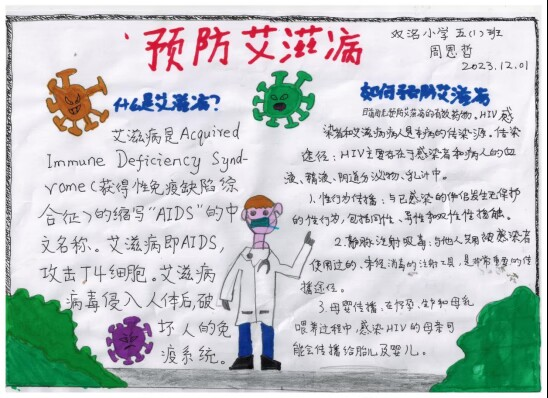 预防艾滋病
双洺小学五(1)班
周恩哲
2023.12.01
什么是艾滋病?
艾滋病是Acquired
Immune Deficiency Synd-
rome(获得性免疫缺陷综
合征)的缩写“AIDS”的中
文名称。艾滋病即AIDS,
攻击T4细胞。艾滋病
病毒侵入人体后,破
坏人的免
疫系统。
如何预防艾滋病
目前尚无预防艾滋病的有效药物。HIV感
染者和艾滋病病人是本病的传染源。传染
途径:HIV主要存在于感染者和病人的血
液、精液、阴道分泌物、乳汁中。
1.性行为传播:与已感染的伴侣发生无保护
的性行为,包括同性、异性和双性性接触。
2.静脉注射吸毒:与他人共用被感染者
使用过的、未经消毒的注射工具,是非常重要的传
播途径。
3.母婴传播:在怀孕、生产和母乳
喂养过程中,感染HIV的母亲可
能会传播给胎儿及婴儿。